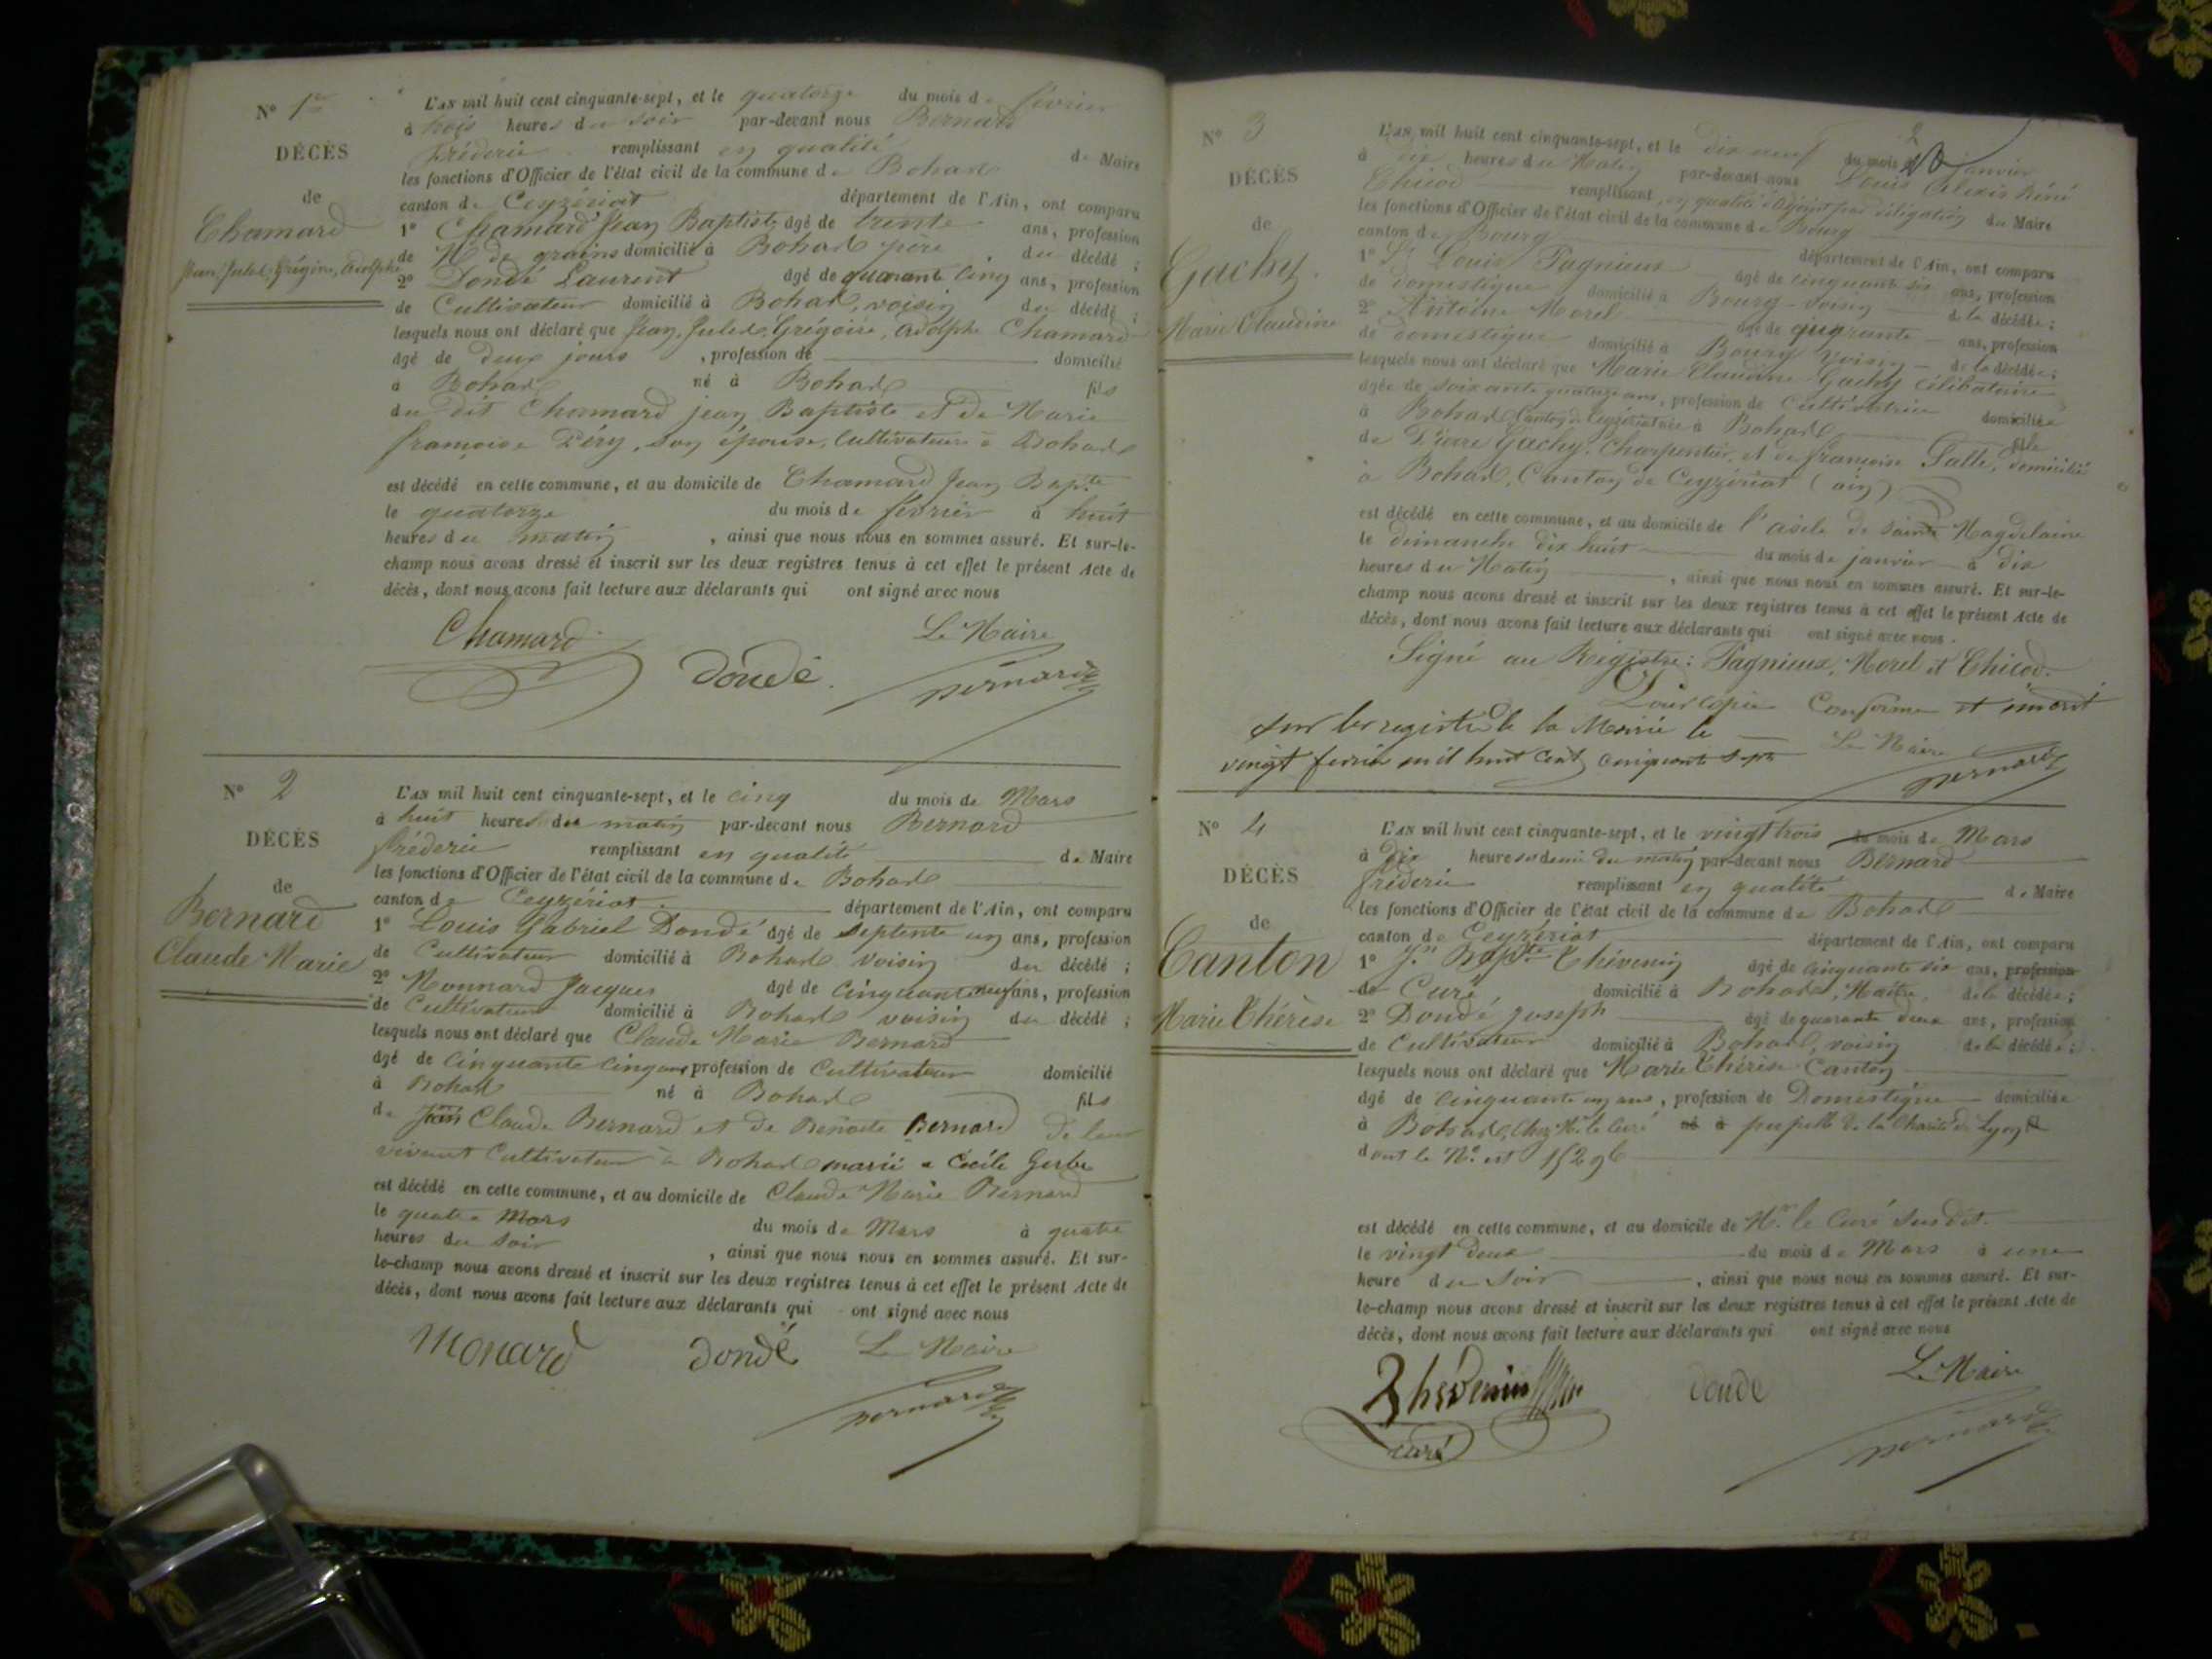 N° 1er
DÉCÈS
de
Chamard
Jean, Jules, Grégoire, Adolphe
L'AN mil huit cent cinquante-sept, et le quatorze du mois de février
à trois heures du soir par-devant nous Bernard
fréderic remplissant en qualité de Maire
les fonctions d'Officier de l'état civil de la commune de Bohas
canton de Ceyzériat département de l'Ain, ont comparu
1° Chamard Jean Baptiste âgé de trente ans, profession
de Md de grains domicilié à Bohas père du décédé ;
2° Dondé Laurent âgé de quarante cinq ans, profession
de Cultivateur domicilié à Bohas, voisin du décédé ;
lesquels nous ont déclaré que Jean, Jules, Grégoire, Adolphe Chamard
âgé de deux jours , profession de domicilié
à Bohas né à Bohas fils
du dit Chamard jean Baptiste et de Marie
françoise Péry, son épouse, Cultivateurs à Bohas
est décédé en cette commune, et au domicile de Chamard Jean Bapte
le quatorze du mois de février à huit
heures du matin , ainsi que nous nous en sommes assuré. Et sur-le-
champ nous avons dressé et inscrit sur les deux registres tenus à cet effet le présent Acte de
décès, dont nous avons fait lecture aux déclarants qui ont signé avec nous
Le Maire
Chamard Dondé Bernard
N° 2
DÉCÈS
de
Bernard
Claude Marie
L'AN mil huit cent cinquante-sept, et le cinq du mois de Mars
à huit heures du matin par-devant nous Bernard
fréderic remplissant en qualité de Maire
les fonctions d'Officier de l'état civil de la commune de Bohas
canton de Ceyzériat département de l'Ain, ont comparu
1° Louis Gabriel Dondé âgé de septente un ans, profession
de Cultivateur domicilié à Bohas voisin du décédé ;
2° Monnard Jacques âgé de cinquante neuf ans, profession
de Cultivateur domicilié à Bohas voisin du décédé ;
lesquels nous ont déclaré que Claude Marie Bernard
âgé de cinquante cinq ans profession de Cultivateur domicilié
à Bohas né à Bohas fils
de Claude Bernard et de Benoite Bernard de leur
vivant Cultivateur à Bohas marié a Cécile Gerbe
est décédé en cette commune, et au domicile de Claude Marie Bernard
le quatre Mars du mois de Mars à quatre
heures du soir , ainsi que nous nous en sommes assuré. Et sur-
le-champ nous avons dressé et inscrit sur les deux registres tenus à cet effet le présent Acte de
décès, dont nous avons fait lecture aux déclarants qui ont signé avec nous
Monard dondé Le Maire
Bernard
N° 3
DÉCÈS
de
Gachy
Marie Claudine
L'AN mil huit cent cinquante-sept, et le dix neuf du mois de janvier
à dix heures du Matin par-devant nous Louis Alexis Réné
Chicod remplissant, en qualité d'adjoint par délégation du Maire
les fonctions d'Officier de l'état civil de la commune de Bourg
canton de Bourg département de l'Ain, ont comparu
1° Sr Louis Pagnieux âgé de cinquante six ans, profession
de domestique domicilié à Bourg voisin de la décédée ;
2° Antoine Morel âgé de quarante ans, profession
de domestique domicilié à Bourg voisin de la décédée ;
lesquels nous ont déclaré que Marie Claudine Gachy Célibataire
âgée de soixante quatorze ans, profession de Cultivatrice domiciliée
à Bohas Canton de Ceyzériat née à Bohas fille
de Pierre Gachy, Charpentier, et de françoise Salle, domicilié
à Bohas, Canton de Ceyzériat (ain)
est décédé en cette commune, et au domicile de l'asile de sainte Magdelaine
le dimanche dix huit du mois de janvier à dix
heures du Matin , ainsi que nous nous en sommes assuré. Et sur-le-
champ nous avons dressé et inscrit sur les deux registres tenus à cet effet le présent Acte de
décès, dont nous avons fait lecture aux déclarants qui ont signé avec nous.
Signé au Registre : Pagnieux, Morel et Chicod.
Pour copie Conforme et inscrit
sur les registre de la Mairie le
vingt fevrier mil huit cent cinquante sept
Le Maire
Bernard
N° 4
DÉCÈS
de
Canton
Marie Thérèse
L'AN mil huit cent cinquante-sept, et le vingt trois du mois de Mars
à dix heures et demi du matin par-devant nous Bernard
fréderic remplissant en qualité de Maire
les fonctions d'Officier de l'état civil de la commune de Bohas
canton de Ceyzériat département de l'Ain, ont comparu
1° Jn Bapte Thévenin âgé de cinquante six ans, profession
de Curé domicilié à Bohas, Maître de la décédée ;
2° Dondé joseph âgé de quarante deux ans, profession
de Cultivateur domicilié à Bohas, voisin de la décédée ;
lesquels nous ont déclaré que Marie Thérèse Canton
âgé de cinquante un ans, profession de Domestique domiciliée
à Bohas, chez Mr le Curé né à pupille de la Charité de Lyon
dont le N° est 15296
est décédé en cette commune, et au domicile de Mr le Curé susdit.
le vingt deux du mois de Mars à une
heure du soir , ainsi que nous nous en sommes assuré. Et sur-
le-champ nous avons dressé et inscrit sur les deux registres tenus à cet effet le présent Acte de
décès, dont nous avons fait lecture aux déclarants qui ont signé avec nous
Thévenin dondé Le Maire
curé Bernard